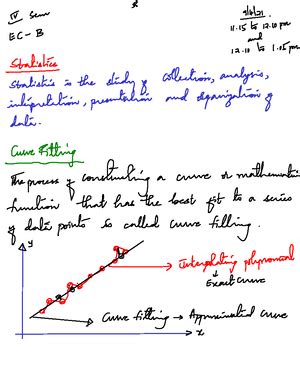 IV Sem
EC - B
9/6/21
11.15 to 12.10 pm
and
12.10 to 1.05 pm
Statistics
Statistics is the study of collection, analysis,
interpretation, presentation and organization of
data.
Curve Fitting
The process of constructing a curve or mathematical
function that has the best fit to a series
of data points is called curve fitting.
y
Interpolating polynomial
Exact curve
Curve fitting → Approximated curve
x